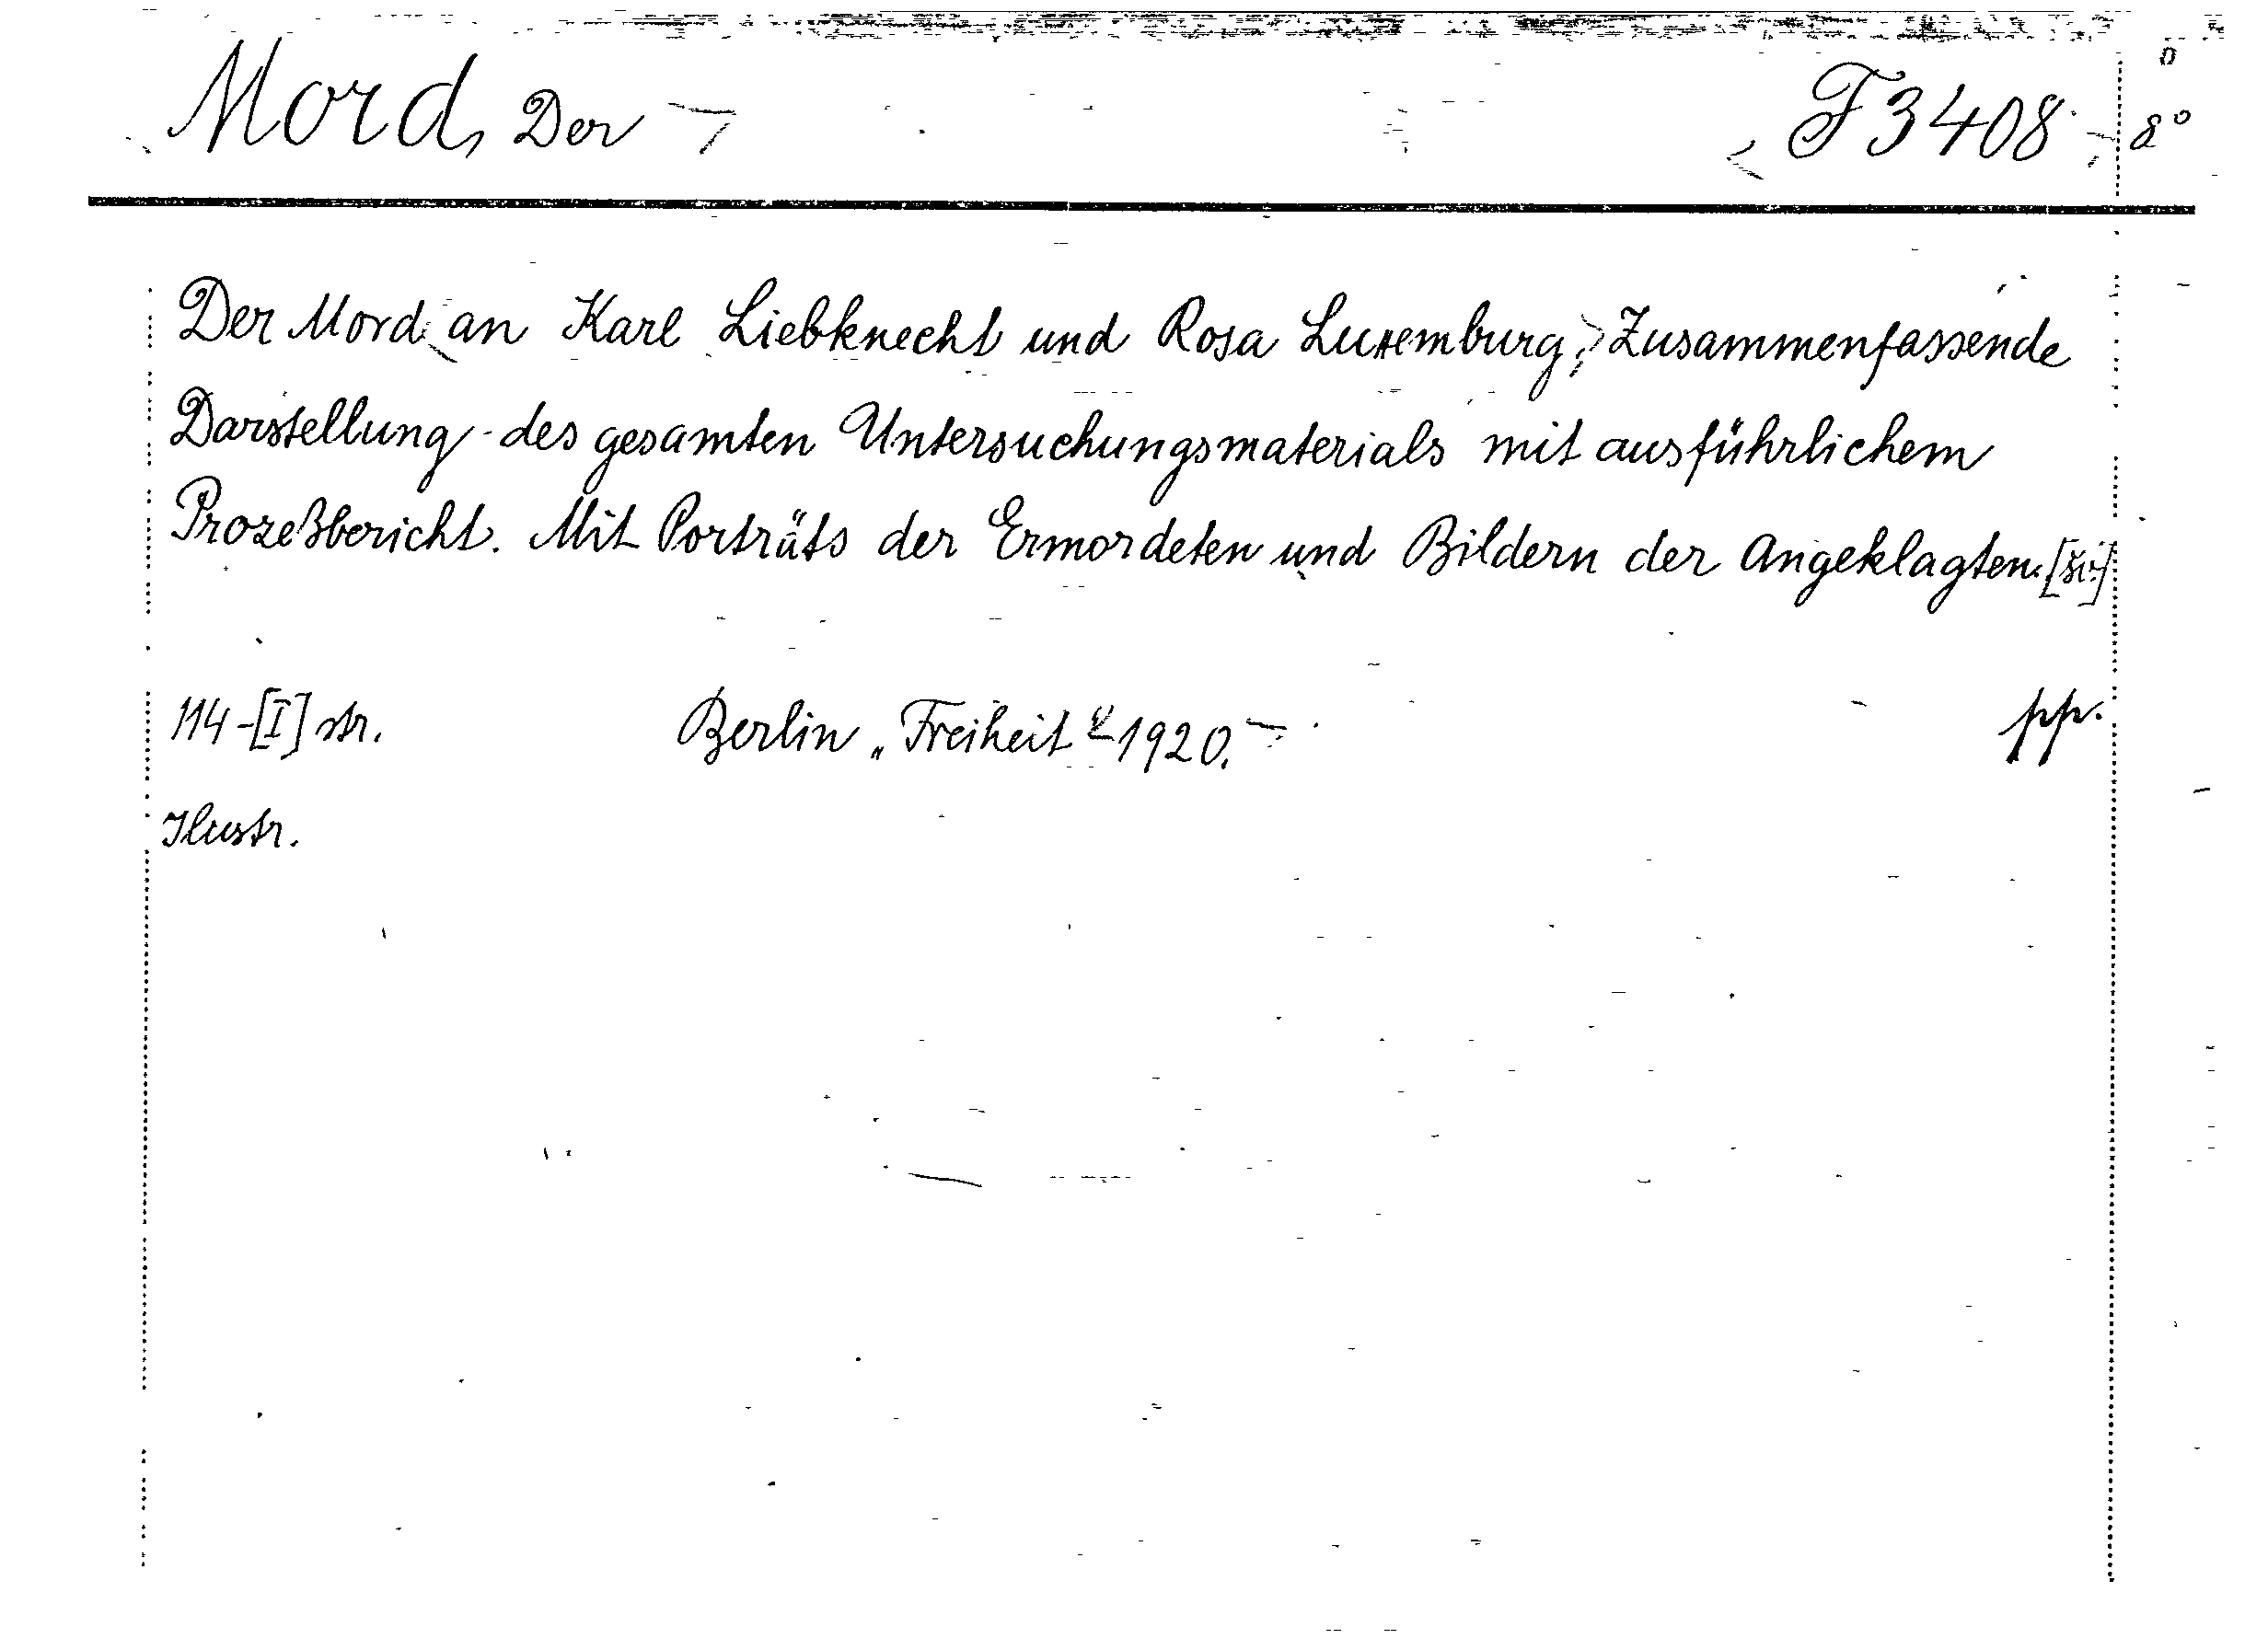 Mord, Der F 3408 8°
Der Mord an Karl Liebknecht und Rosa Luxemburg, Zusammenfassende
Darstellung des gesamten Untersuchungsmaterials mit ausführlichem
Prozeßbericht. Mit Porträts der Ermordeten und Bildern der Angeklagten.
114-[I] str. Berlin „Freiheit“ 1920. pp.
Ilustr.